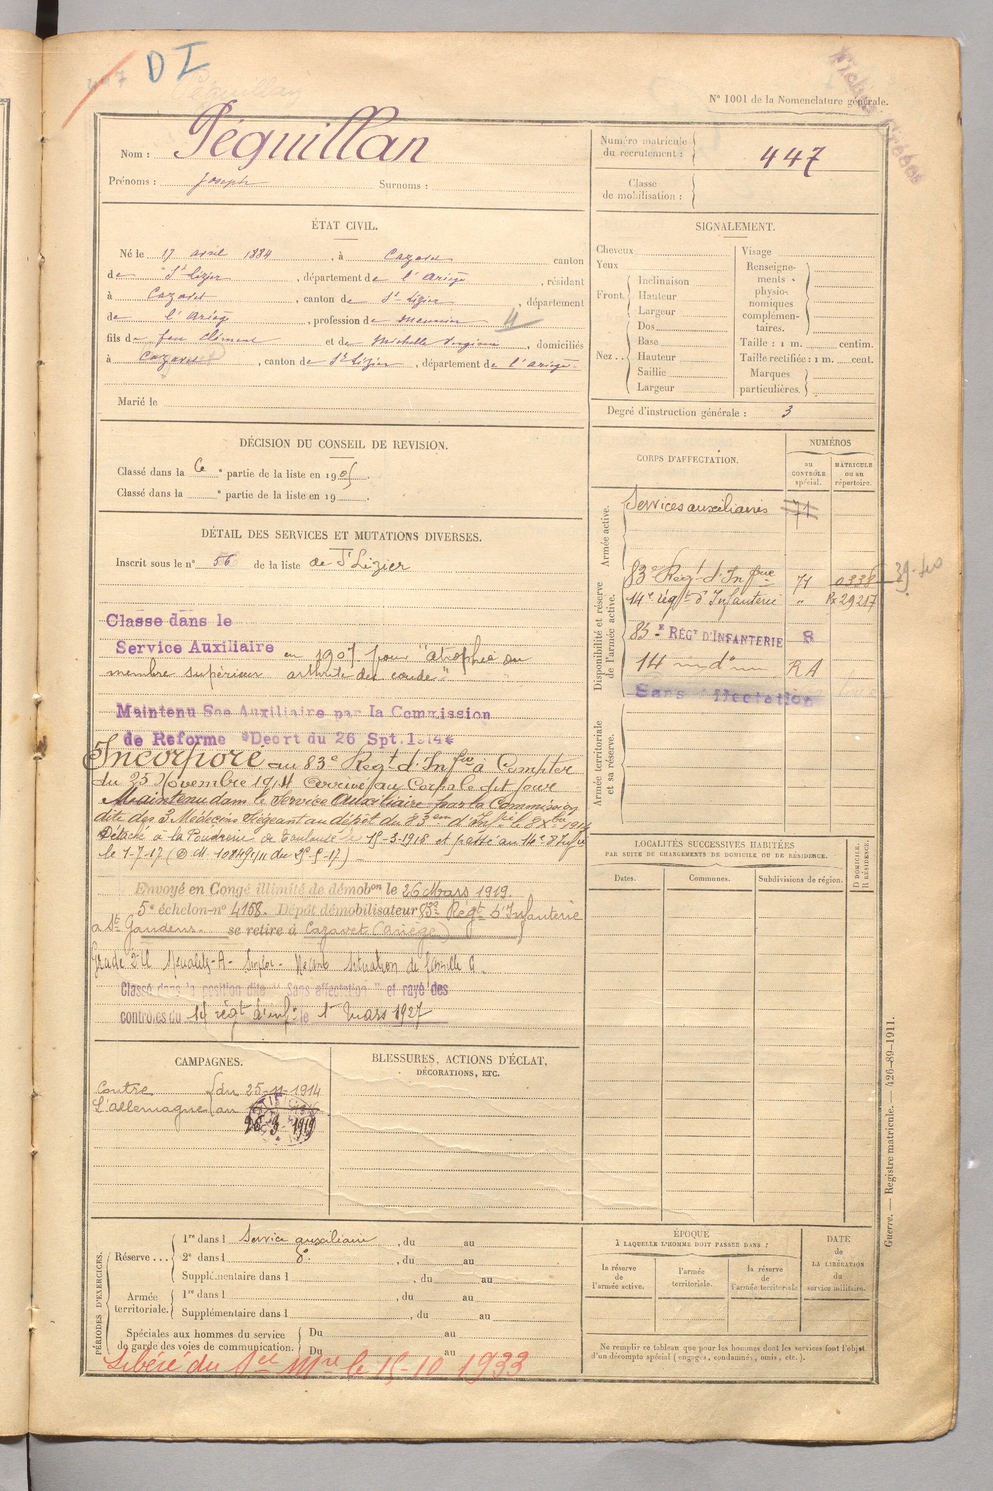 D I
N° 1001 de la Nomenclature générale.
Nom : Péquillan
Prénoms : Joseph Surnoms :
Numéro matricule du recrutement : 447
Classe de mobilisation :
ÉTAT CIVIL.
Né le 17 avril 1884, à Cazavet canton
de St Lizier, département de l'Ariège, résidant
à Cazavet, canton de St Lizier, département
de l'Ariège, profession de
fils de feu Clément et de domiciliés
à Cazavet, canton de St Lizier, département de l'Ariège.
Marié le
SIGNALEMENT.
Cheveux
Yeux
Front. Inclinaison
Hauteur
Largeur
Nez.. Dos
Base
Hauteur
Saillie
Largeur
Visage
Renseignements physionomiques complémentaires.
Taille : 1 m. centim.
Taille rectifiée : 1 m. cent.
Marques particulières.
Degré d'instruction générale : 3
DÉCISION DU CONSEIL DE REVISION.
Classé dans la 6e partie de la liste en 1905.
Classé dans la e partie de la liste en 19 .
DÉTAIL DES SERVICES ET MUTATIONS DIVERSES.
Inscrit sous le n° 56 de la liste de St Lizier
Classé dans le
Service Auxiliaire en 1907 pour "atrophie du
membre supérieur arthrite du coude"
Maintenu Sce Auxiliaire par la Commission
de Reforme "Decrt du 26 Spt. 1914"
Incorporé au 83e Régt d'Infie à Compter
du 25 Novembre 1914 arrivé au Corps le dit jour
Maintenu dans le Service Auxiliaire par la Commission
dite des 3 Médecins siégeant au dépôt du 83ème d'Infie le 8 Xbre 1914
Détaché à la Poudrerie de Toulouse le 15-3-1916 et passé au 14e d'Infie
le 1-7-17
Envoyé en Congé illimité de démobon le 26 Mars 1919.
5e échelon-n° 4158. Dépôt démobilisateur 83e Régt d'Infanterie
à St Gaudens. se retire à Cazavet (Ariège)
Grade situation de famille
Classé dans la position dite "Sans affectation" et rayé des
contrôles du 14 régt d'inf. le 1er mars 1927
CORPS D'AFFECTATION.
NUMÉROS
au CONTRÔLE spécial.
MATRICULE ou au répertoire.
Armée active.
Services auxiliaires 71
Disponibilité et réserve de l'armée active.
83e Régt d'Infrie 71 0338
14e régt d'Infanterie " 29217
83e RÉGT D'INFANTERIE 8
14 d° RA
Sans affectation
Armée territoriale et sa réserve.
LOCALITÉS SUCCESSIVES HABITÉES
PAR SUITE DE CHANGEMENTS DE DOMICILE OU DE RÉSIDENCE.
Dates. Communes. Subdivisions de région. D DOMICILE. R RÉSIDENCE.
CAMPAGNES.
Contre du 25-11-1914
L'allemagne au 26-3-1919
BLESSURES, ACTIONS D'ÉCLAT,
DÉCORATIONS, ETC.
Guerre. — Registre matricule. — 426-89-1911.
PÉRIODES D'EXERCICES.
Réserve... 1re dans l Service auxiliaire, du au
2e dans l d°, du au
Supplémentaire dans l , du au
Armée territoriale. 1re dans l , du au
Supplémentaire dans l , du au
Spéciales aux hommes du service de garde des voies de communication. Du au
Du au
Libéré du Sce Mre le 15-10-1933
ÉPOQUE
À LAQUELLE L'HOMME DOIT PASSER DANS :
la réserve de l'armée active.
l'armée territoriale.
la réserve de l'armée territoriale
DATE de LA LIBÉRATION du service militaire.
Ne remplir ce tableau que pour les hommes dont les services font l'objet
d'un décompte spécial (engagés, condamnés, omis, etc.).